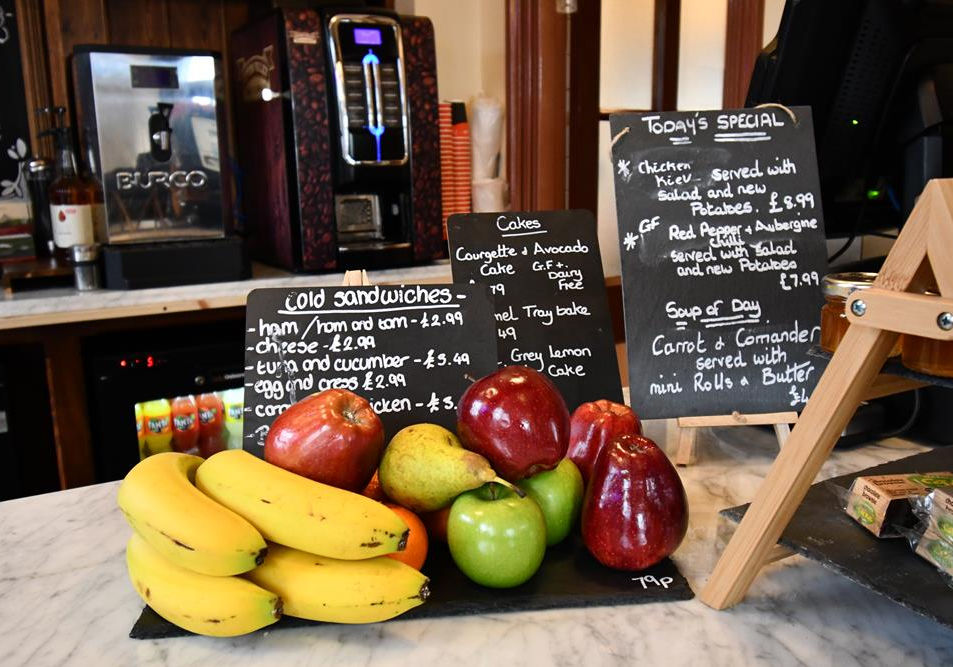 BURCO
TODAY'S SPECIAL
Chicken
Kiev served with
salad and new
Potatoes. £8.99
GF
Red Pepper & Aubergine
chilli
served with salad
and new Potatoes
£7.99
Soup of Day
Carrot & Corriander
served with
mini Rolls & Butter
Cakes
Courgette & Avocado
Cake G.F +.
Dairy
79 Free
Tray bake
49
Grey Lemon
Cake
Cold sandwiches-
- ham / ham and tom - £2.99
- cheese - £2.99
- tuna and cucumber - £3.49
- egg and cress £2.99
79p